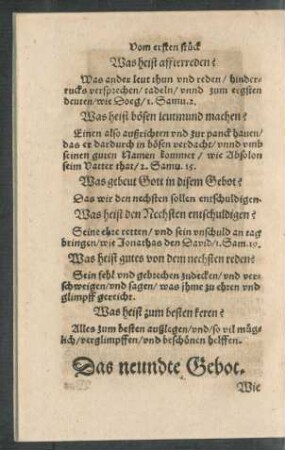 Vom ersten stück
Was heist affterreden?
Was ander leut thun vnd reden/ hinder-
rucks versprechen/ tadeln/ vnnd zum ergsten
deuten/ wie Doeg/ 1. Samu. 2.
Was heist bösen leumund machen?
Einen also außrichten vnd zur panck hauen/
das er dardurch in bösen verdacht/ vnnd vmb
seinen guten Namen kommet/ wie Absolon
seim Vatter that/ 2. Samu. 15.
Was gebeut Gott in disem Gebot?
Das wir den nechsten sollen entschuldigen.
Was heist den Nechsten entschuldigen?
Seine ehre retten/ vnd sein vnschuld an tag
bringen/ wie Jonathas den Dauid/ 1. Sam. 19.
Was heist gutes von dem nechsten reden?
Sein fehl vnd gebrechen zudecken/ vnd ver-
schweigen/ vnd sagen/ was jhme zu ehren vnd
glimpff gereicht.
Was heist zum besten keren?
Alles zum besten außlegen/ vnd/ so vil müg-
lich/ verglimpffen/ vnd beschönen helffen.
Das neundte Gebot.
Wie